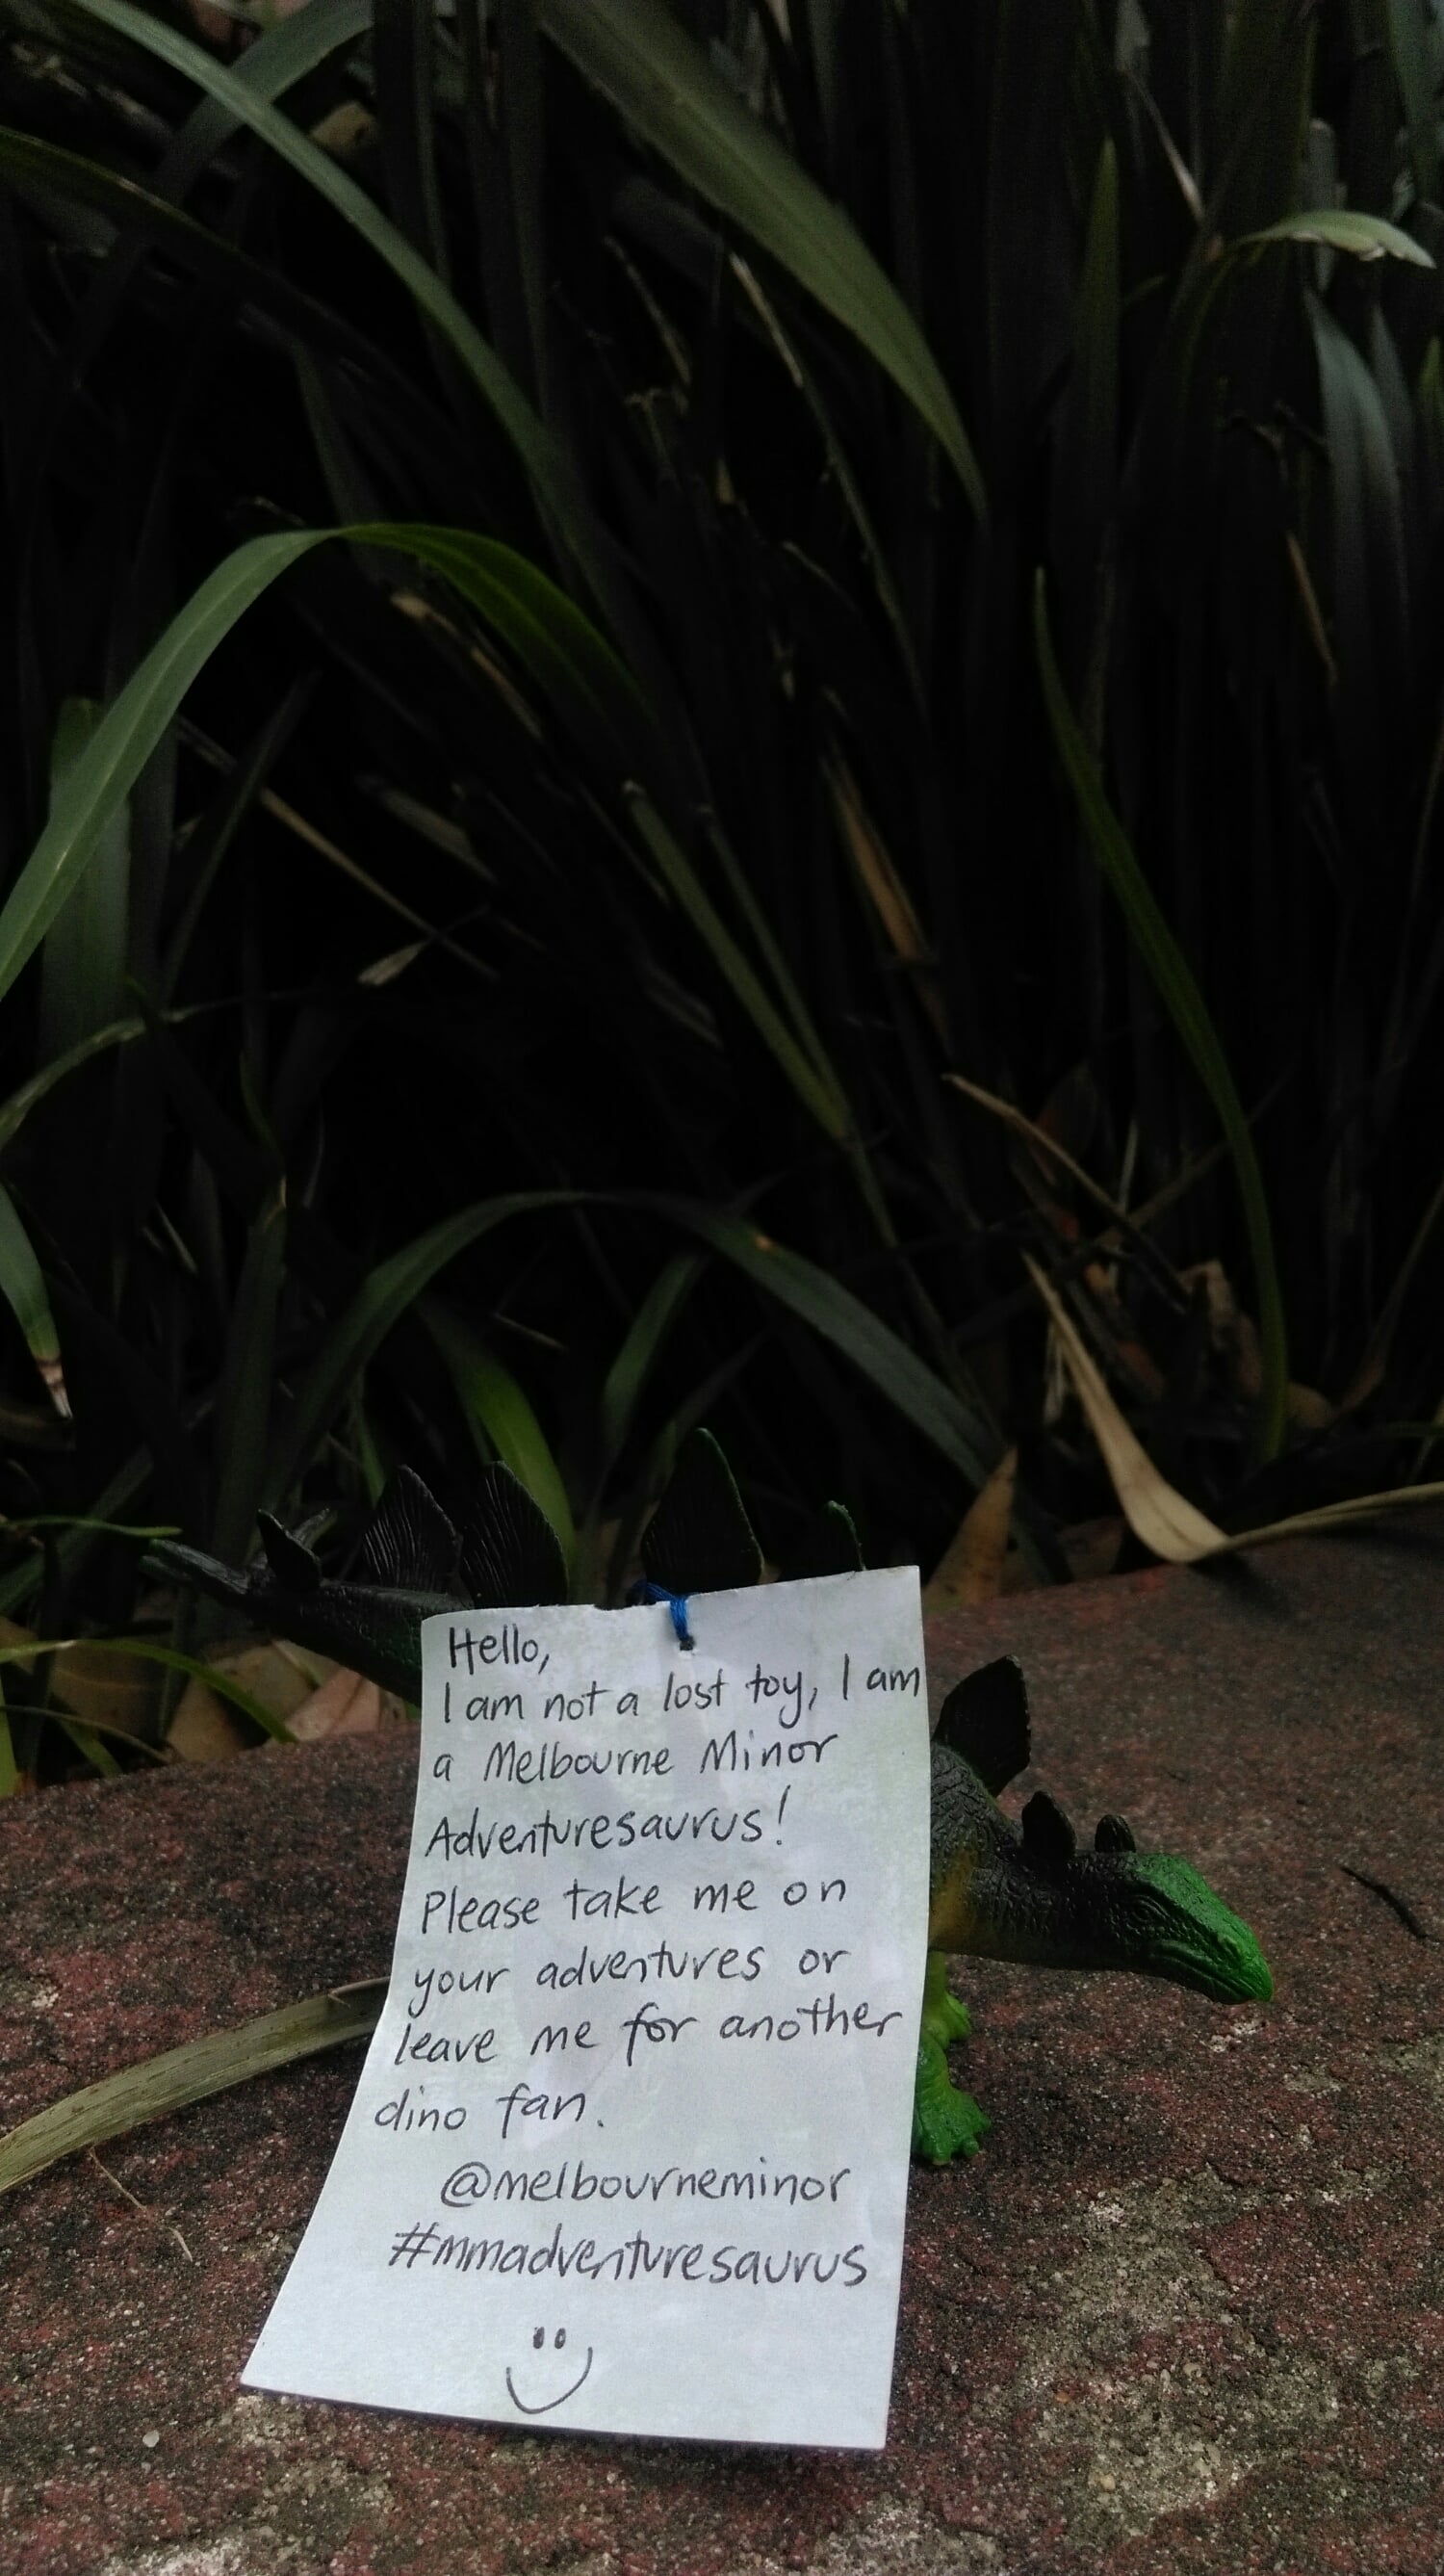 Hello,
I am not a lost toy, I am
a Melbourne Minor
Adventuresaurus!
Please take me on
your adventures or
leave me for another
dino fan.
@melbourneminor
#mmadventuresaurus